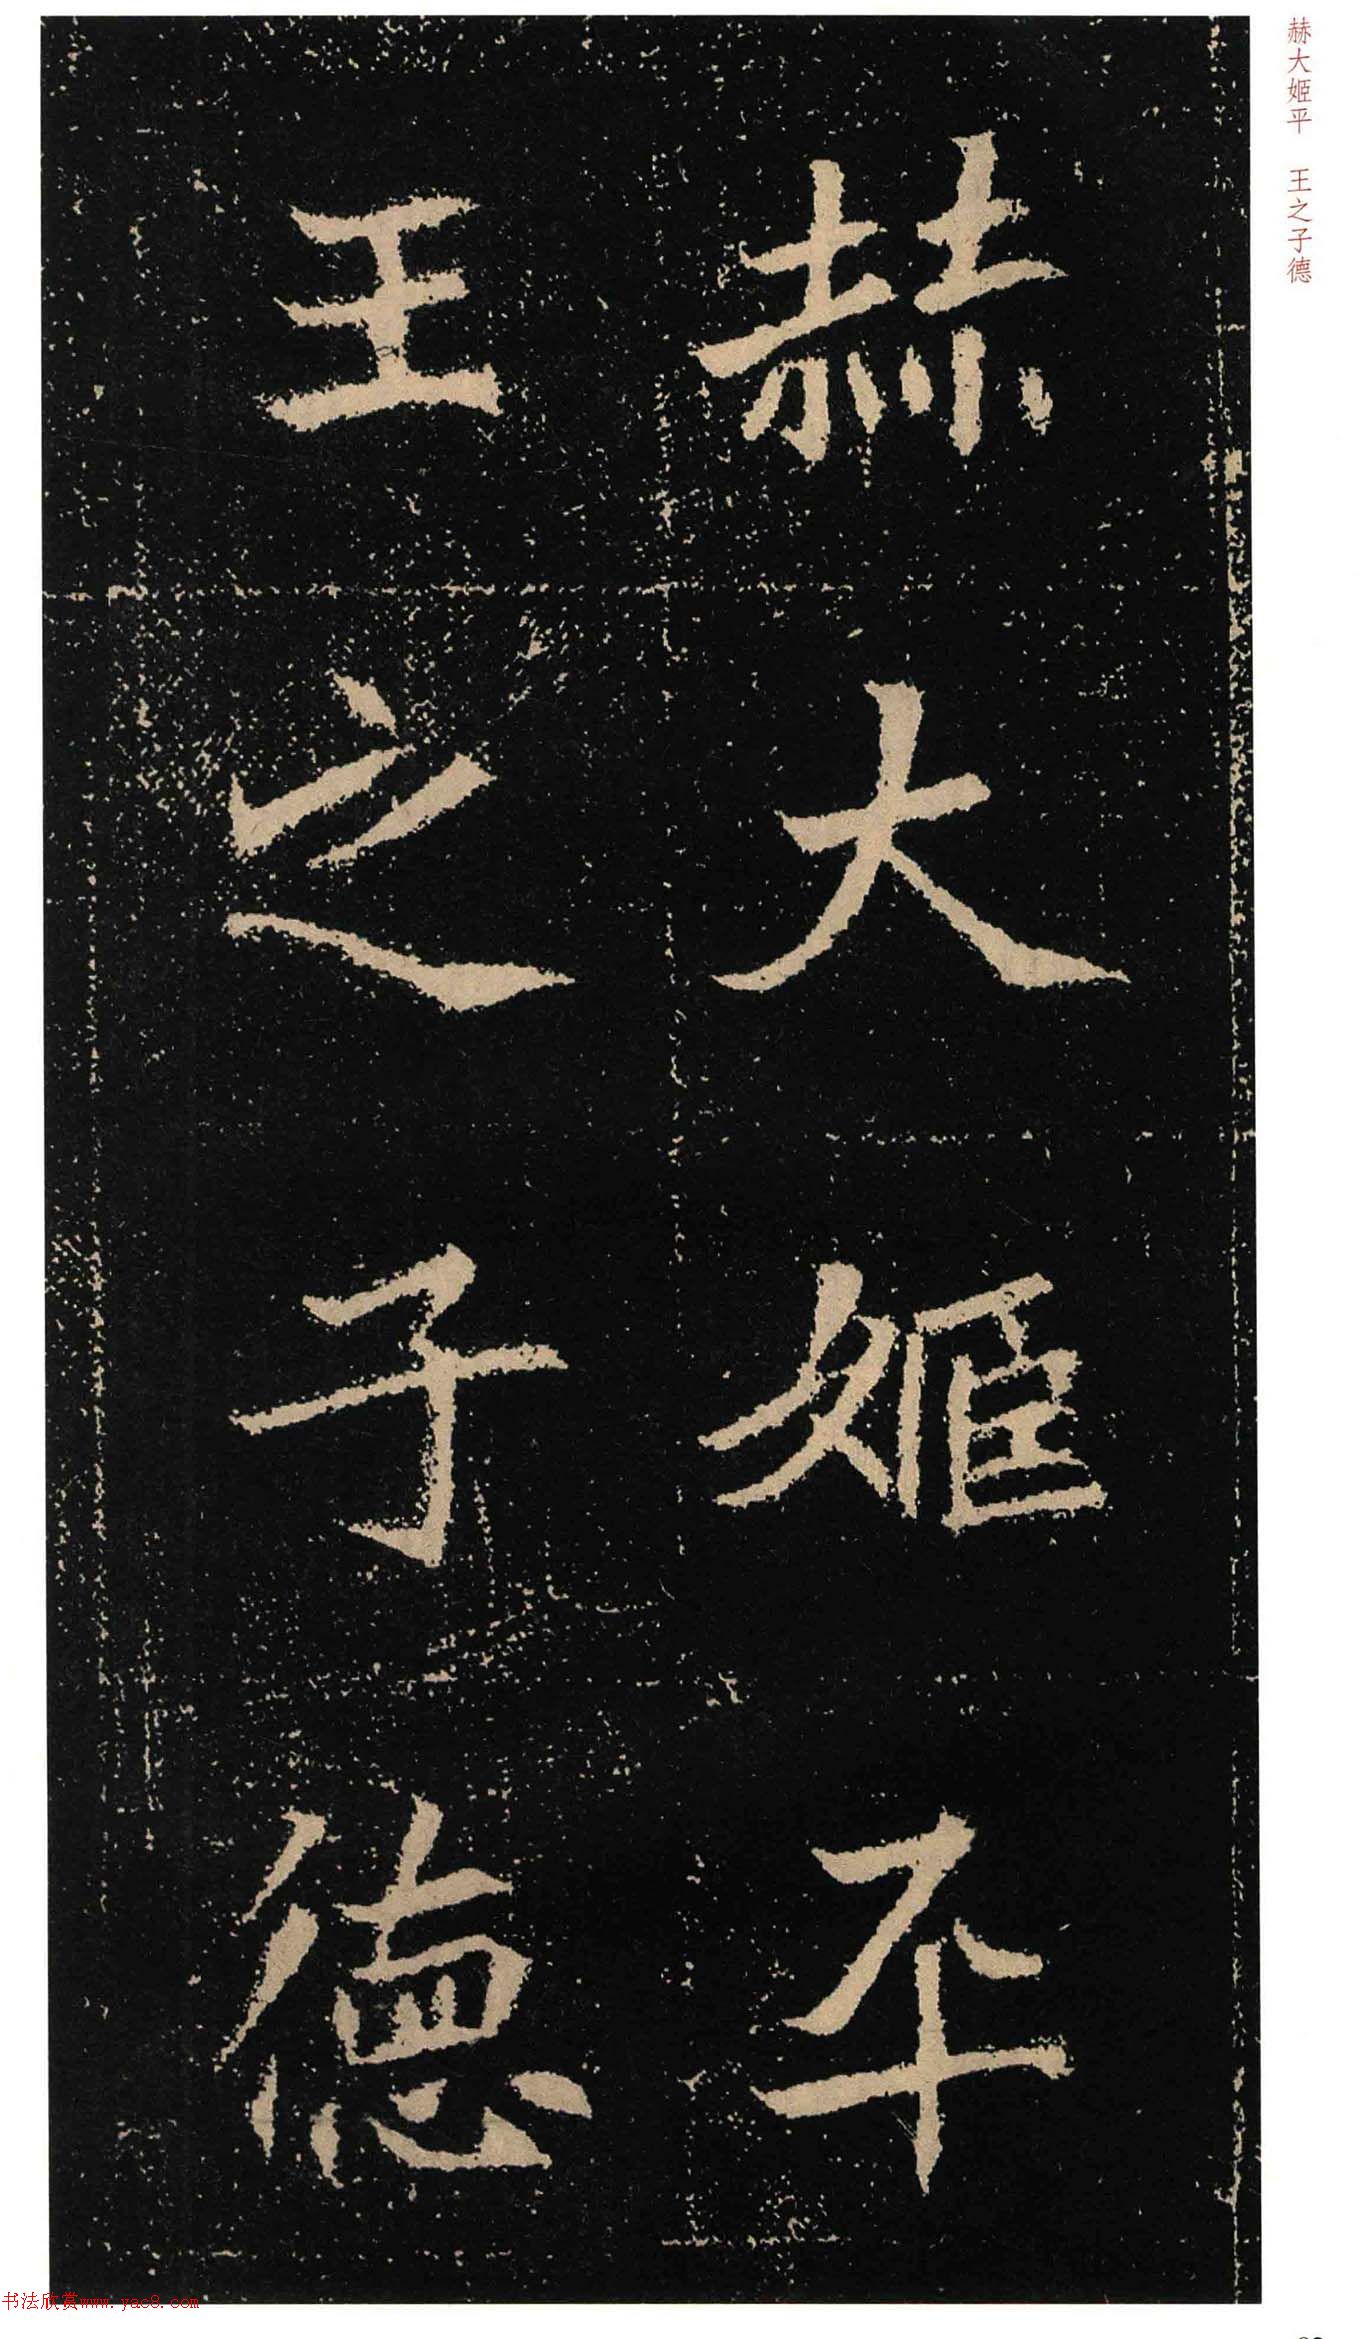 赫大姬平　王之子德
赫大姬平
王之子德
书法欣赏www.yac8.com